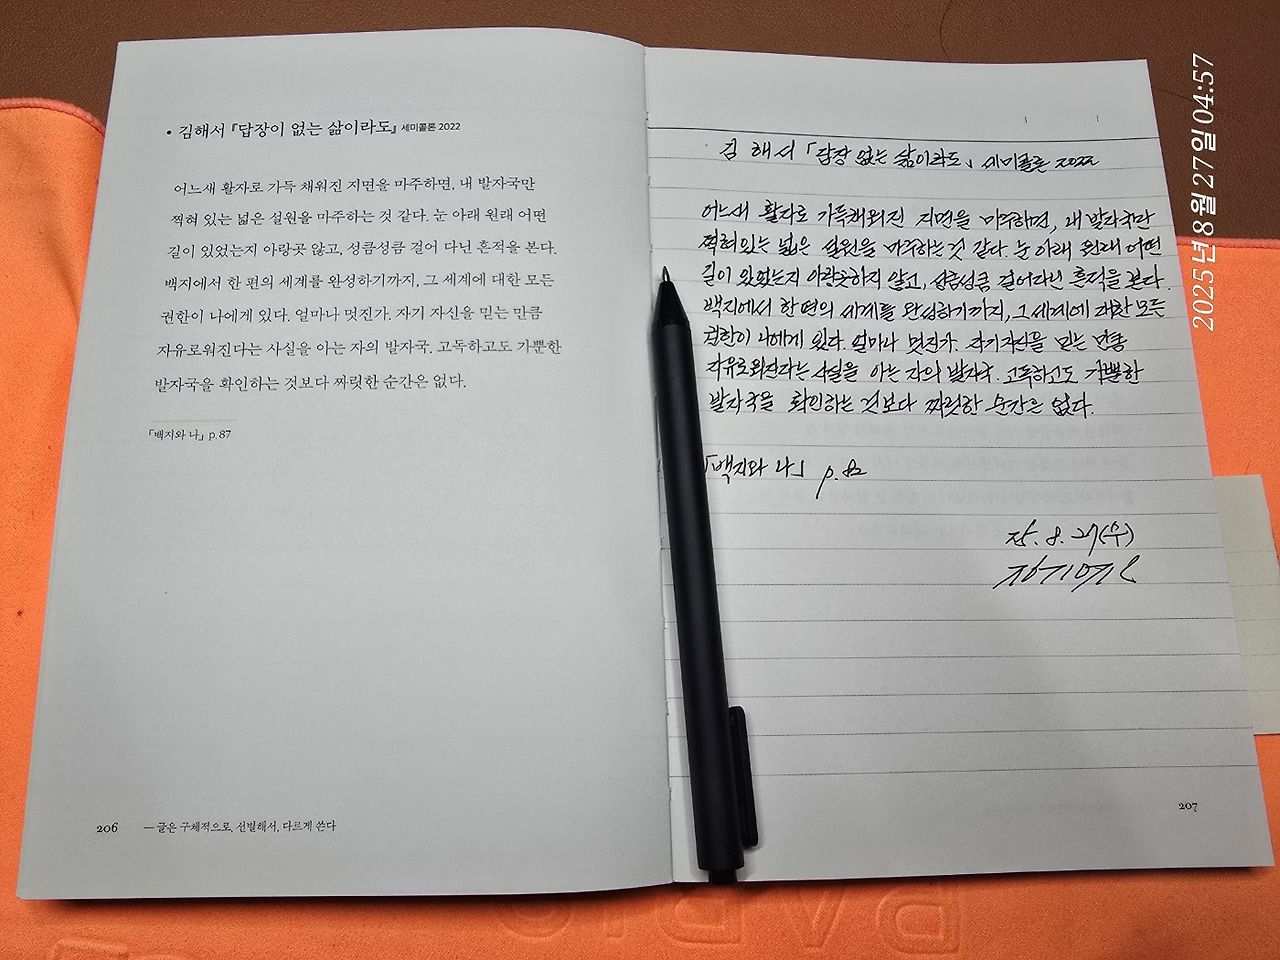 • 김해서 『답장이 없는 삶이라도』 세미콜론 2022
어느새 활자로 가득 채워진 지면을 마주하면, 내 발자국만
찍혀 있는 넓은 설원을 마주하는 것 같다. 눈 아래 원래 어떤
길이 있었는지 아랑곳 않고, 성큼성큼 걸어 다닌 흔적을 본다.
백지에서 한 편의 세계를 완성하기까지, 그 세계에 대한 모든
권한이 나에게 있다. 얼마나 멋진가. 자기 자신을 믿는 만큼
자유로워진다는 사실을 아는 자의 발자국. 고독하고도 가뿐한
발자국을 확인하는 것보다 짜릿한 순간은 없다.
「백지와 나」 p.87
206 ― 글은 구체적으로, 선별해서, 다르게 쓴다
김해서 「답장 없는 삶이라도」 세미콜론 2022
어느새 활자로 가득채워진 지면을 마주하면, 내 발자국만
찍혀있는 넓은 설원을 마주하는 것 같다. 눈 아래 원래 어떤
길이 있었는지 아랑곳하지 않고, 성큼성큼 걸어다닌 흔적을 본다.
백지에서 한편의 세계를 완성하기까지, 그 세계에 대한 모든
권한이 나에게 있다. 얼마나 멋진가. 자기자신을 믿는 만큼
자유로워진다는 사실을 아는 자의 발자국. 고독하고도 가뿐한
발자국을 확인하는 것보다 짜릿한 순간은 없다.
「백지와 나」 p.82
25. 8. 27(수)
207
2025년 8월 27일 04:57